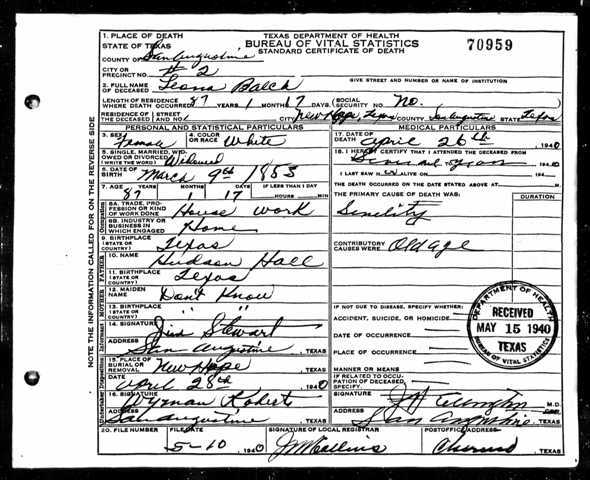 TEXAS DEPARTMENT OF HEALTH
BUREAU OF VITAL STATISTICS
STANDARD CERTIFICATE OF DEATH
70959
1. PLACE OF DEATH
STATE OF TEXAS
COUNTY OF San Augustine
CITY OR PRECINCT NO. #2
GIVE STREET AND NUMBER OR NAME OF INSTITUTION
2. FULL NAME OF DECEASED Leona Balch
LENGTH OF RESIDENCE WHERE DEATH OCCURRED 87 YEARS 1 MONTHS 17 DAYS (SOCIAL SECURITY NO. No.
RESIDENCE OF THE DECEASED AND NO. CITY New Hope, Texas COUNTY San Augustine STATE Texas
PERSONAL AND STATISTICAL PARTICULARS
3. SEX Female 4. COLOR OR RACE White
5. SINGLE, MARRIED, WIDOWED OR DIVORCED (WRITE THE WORD) Widowed
6. DATE OF BIRTH March 9th 1853
7. AGE YEARS MONTHS DAYS IF LESS THAN 1 DAY
87 1 17 HOURS MIN
8A. TRADE, PROFESSION OR KIND OF WORK DONE House work
8B. INDUSTRY OR BUSINESS IN WHICH ENGAGED Home
9. BIRTHPLACE (STATE OR COUNTRY) Texas
10. NAME Hudson Hall
11. BIRTHPLACE (STATE OR COUNTRY) Texas
12. MAIDEN NAME Don't Know
13. BIRTHPLACE (STATE OR COUNTRY) " "
14. SIGNATURE Jim Stewart
ADDRESS San Augustine, TEXAS
15. PLACE OF BURIAL OR REMOVAL New Hope, TEXAS
DATE April 28th 1940
16. SIGNATURE Wyman Roberts
ADDRESS San Augustine TEXAS
MEDICAL PARTICULARS
17. DATE OF DEATH April 26th, 1940
18. I HEREBY CERTIFY THAT I ATTENDED THE DECEASED FROM
1940
I LAST SAW ALIVE ON 194
THE DEATH OCCURRED ON THE DATE STATED ABOVE AT M.
THE PRIMARY CAUSE OF DEATH WAS: DURATION
Senility
CONTRIBUTORY CAUSES WERE: Old age
IF NOT DUE TO DISEASE, SPECIFY WHETHER:
ACCIDENT, SUICIDE, OR HOMICIDE
DATE OF OCCURRENCE
PLACE OF OCCURRENCE
MANNER OR MEANS
IF RELATED TO OCCUPATION OF DECEASED SPECIFY
SIGNATURE M.D.
ADDRESS San Augustine TEXAS
DEPARTMENT OF HEALTH
RECEIVED
MAY 15 1940
TEXAS
BUREAU OF VITAL STATISTICS
20. FILE NUMBER FILE DATE SIGNATURE OF LOCAL REGISTRAR POSTOFFICE ADDRESS
5-10 1940 TEXAS
NOTE THE INFORMATION CALLED FOR ON THE REVERSE SIDE
Occupation
FATHER
MOTHER
Informant
Undertaker